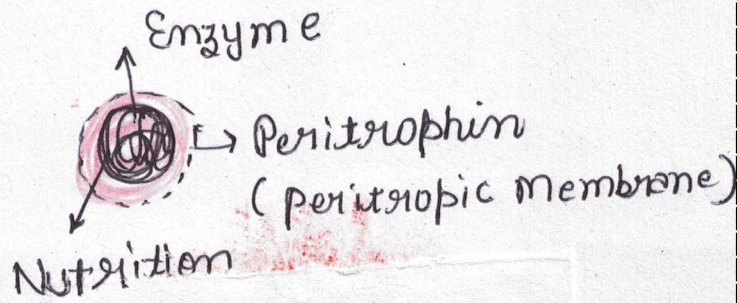 Enzyme
Peritrophin
(peritropic membrane)
Nutrition